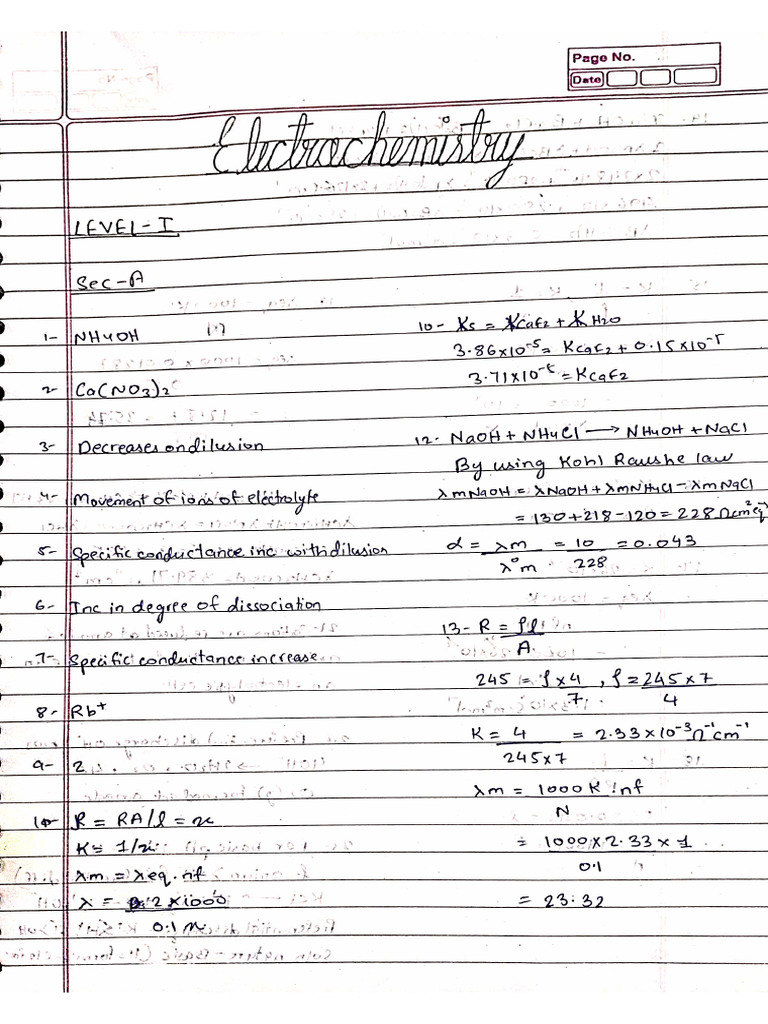 Page No.
Date
Electrochemistry
LEVEL-I
Sec-A
1- NH4OH
2- Ca(NO3)2
3- Decreases on dilusion
4- Movement of ions of electrolyte
5- Specific conductance inc with dilusion
6- Inc in degree of dissociation
7- Specific conductance increase
8- Rb+
9- 2
10- R = RA/l = x
K = 1/x
λm = λeq. nf
λ = 2 × 1000
0.1 x
10- Ks = KCaF2 + KH2O
3.86×10⁻⁵ = KCaF2 + 0.15×10⁻⁵
3.71×10⁻⁵ = KCaF2
12- NaOH + NH4Cl → NH4OH + NaCl
By using Kohl Raushe law
λmNaOH = λNaOH + λmNH4Cl - λmNaCl
= 130+218-120 = 228 Ωcm²eq⁻¹
α = λm = 10 = 0.043
λ°m 228
13- R = ρl
A
245 = ρ×4 , ρ = 245×7
7 4
K = 4 = 2.33×10⁻³Ω⁻¹cm⁻¹
245×7
λm = 1000 K ! nf
N
= 1000×2.33×1
0.1
= 23.32